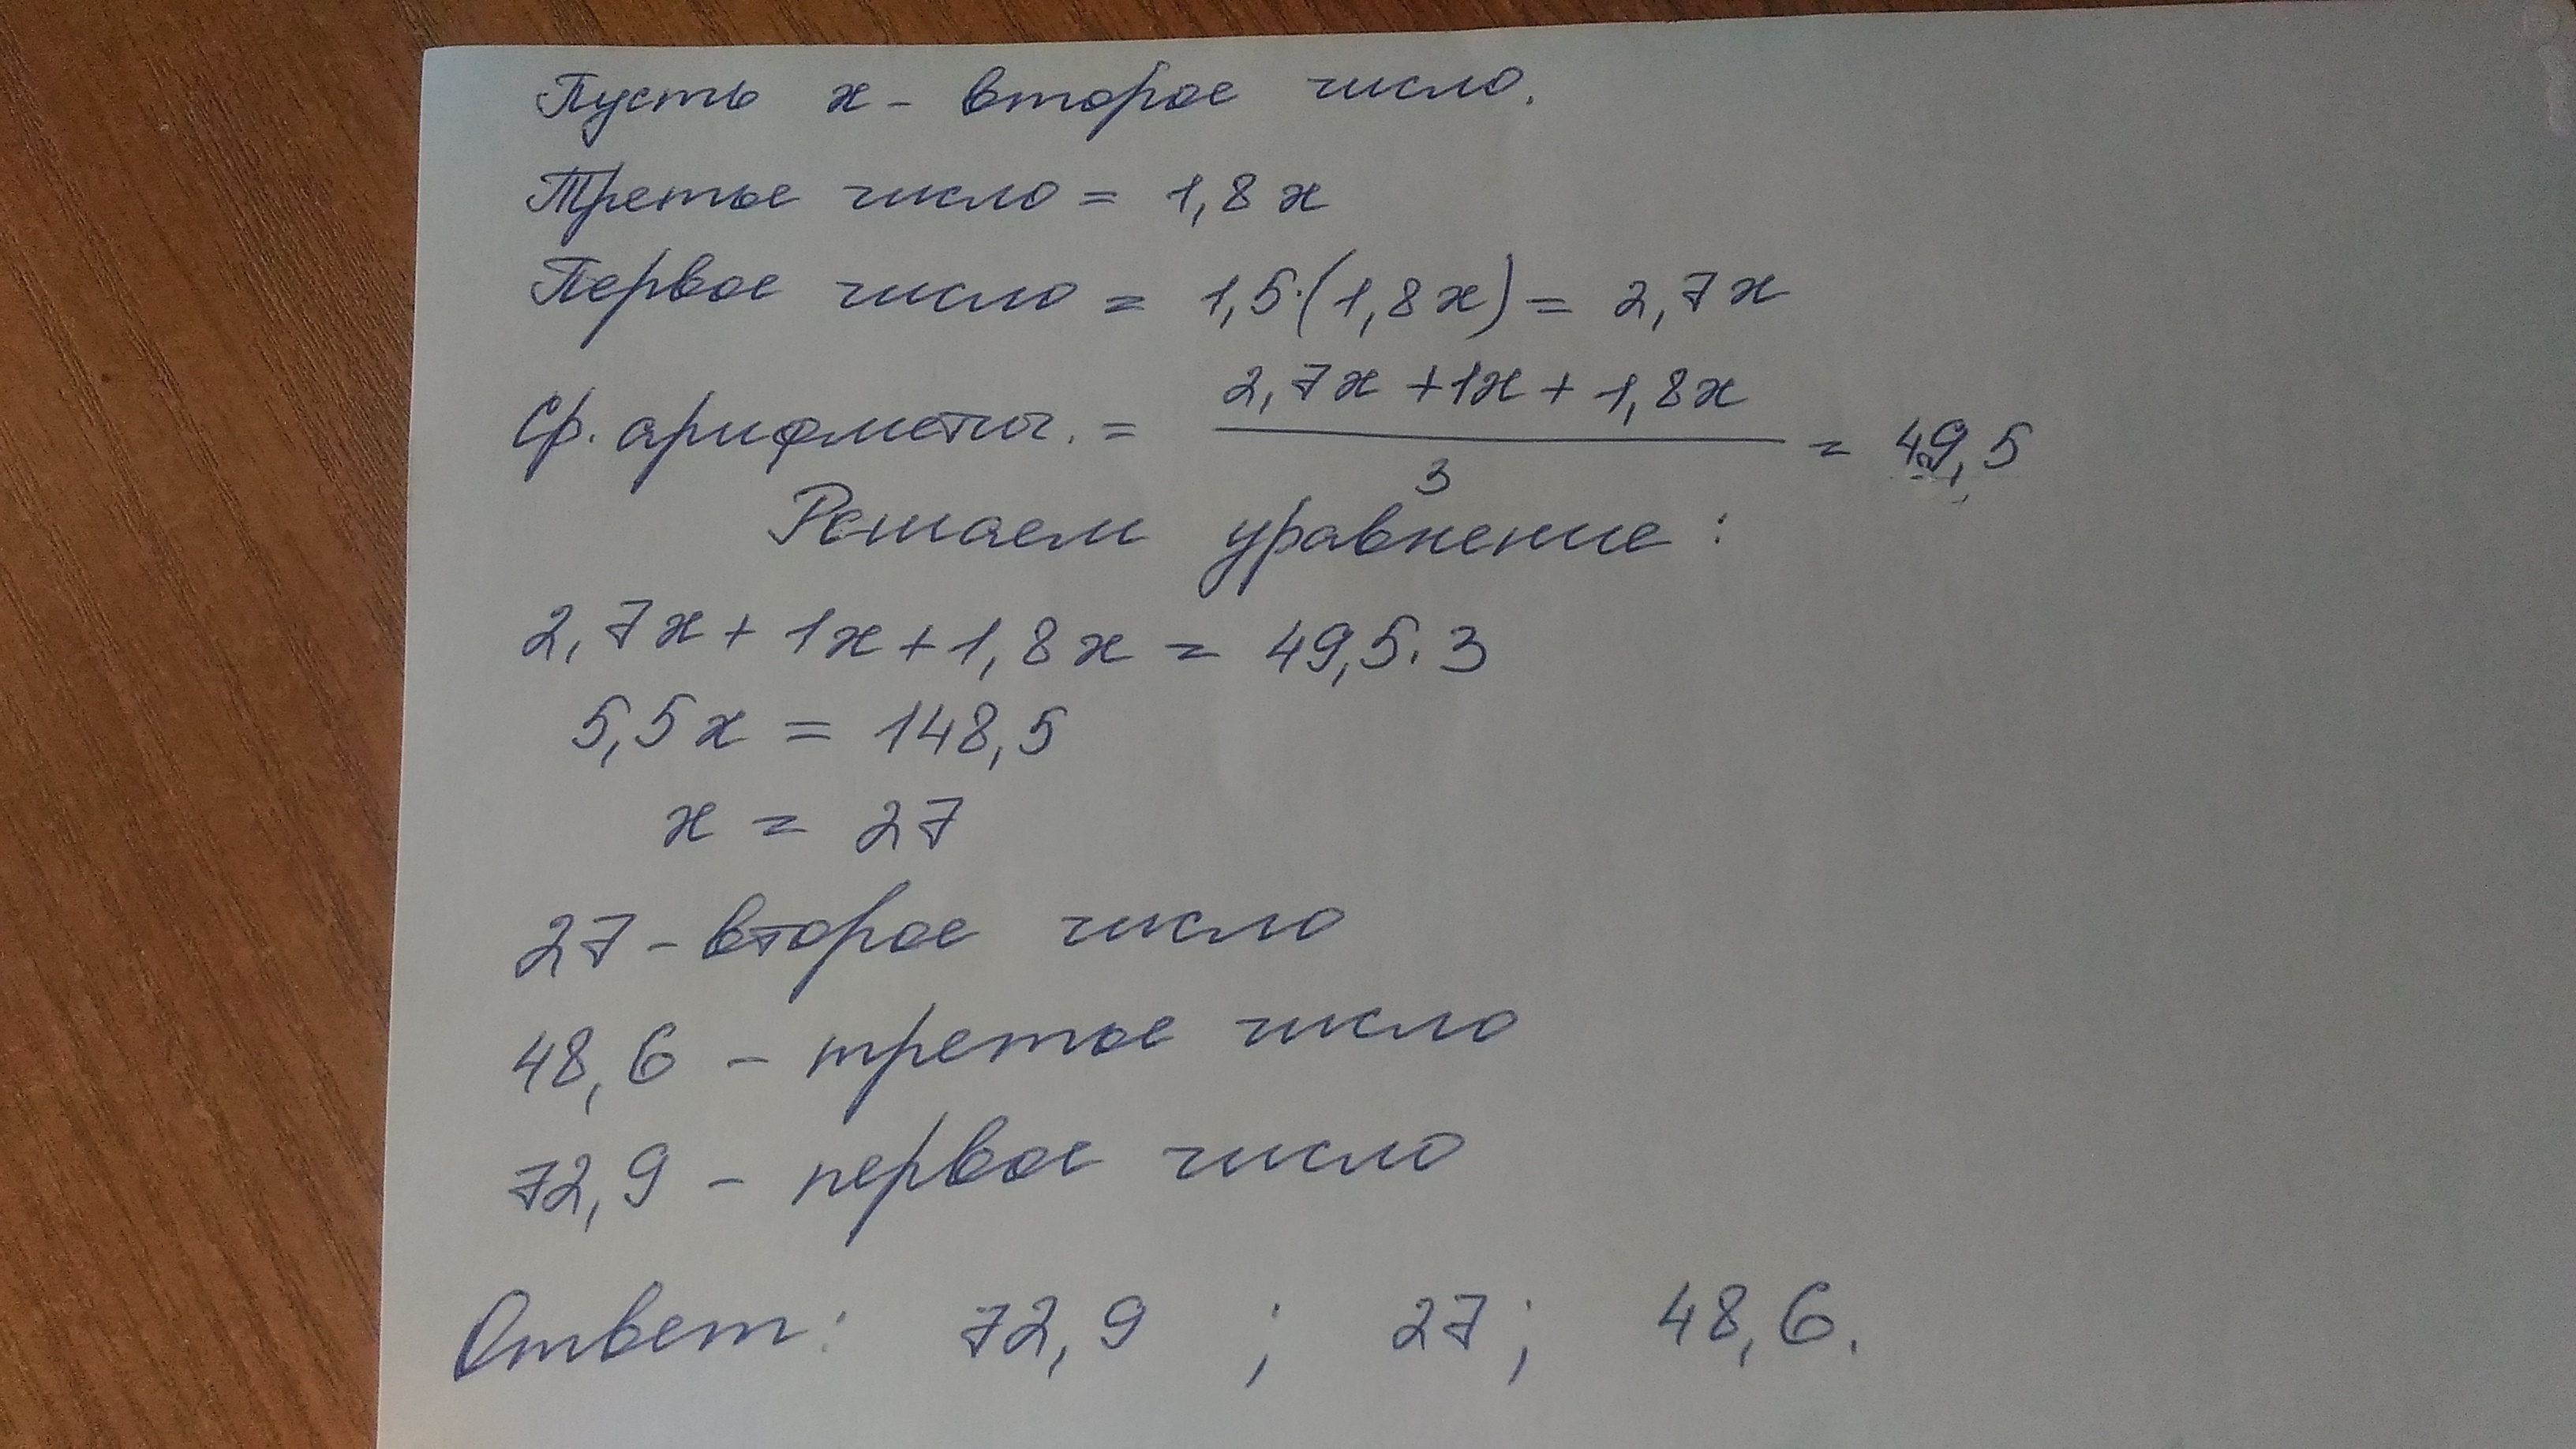 Пусть x - второе число.
Третье число = 1,8x
Первое число = 1,5·(1,8x) = 2,7x
Ср. арифметич. = (2,7x + 1x + 1,8x) / 3 = 49,5
Решаем уравнение:
2,7x + 1x + 1,8x = 49,5·3
5,5x = 148,5
x = 27
27 - второе число
48,6 - третье число
72,9 - первое число
Ответ: 72,9 ; 27; 48,6.